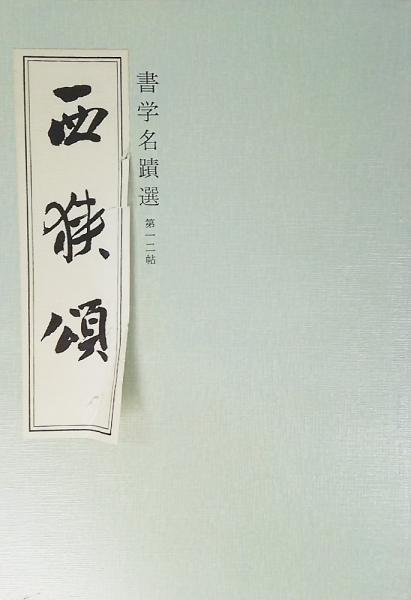 書学名蹟選 第一二帖
西狭頌